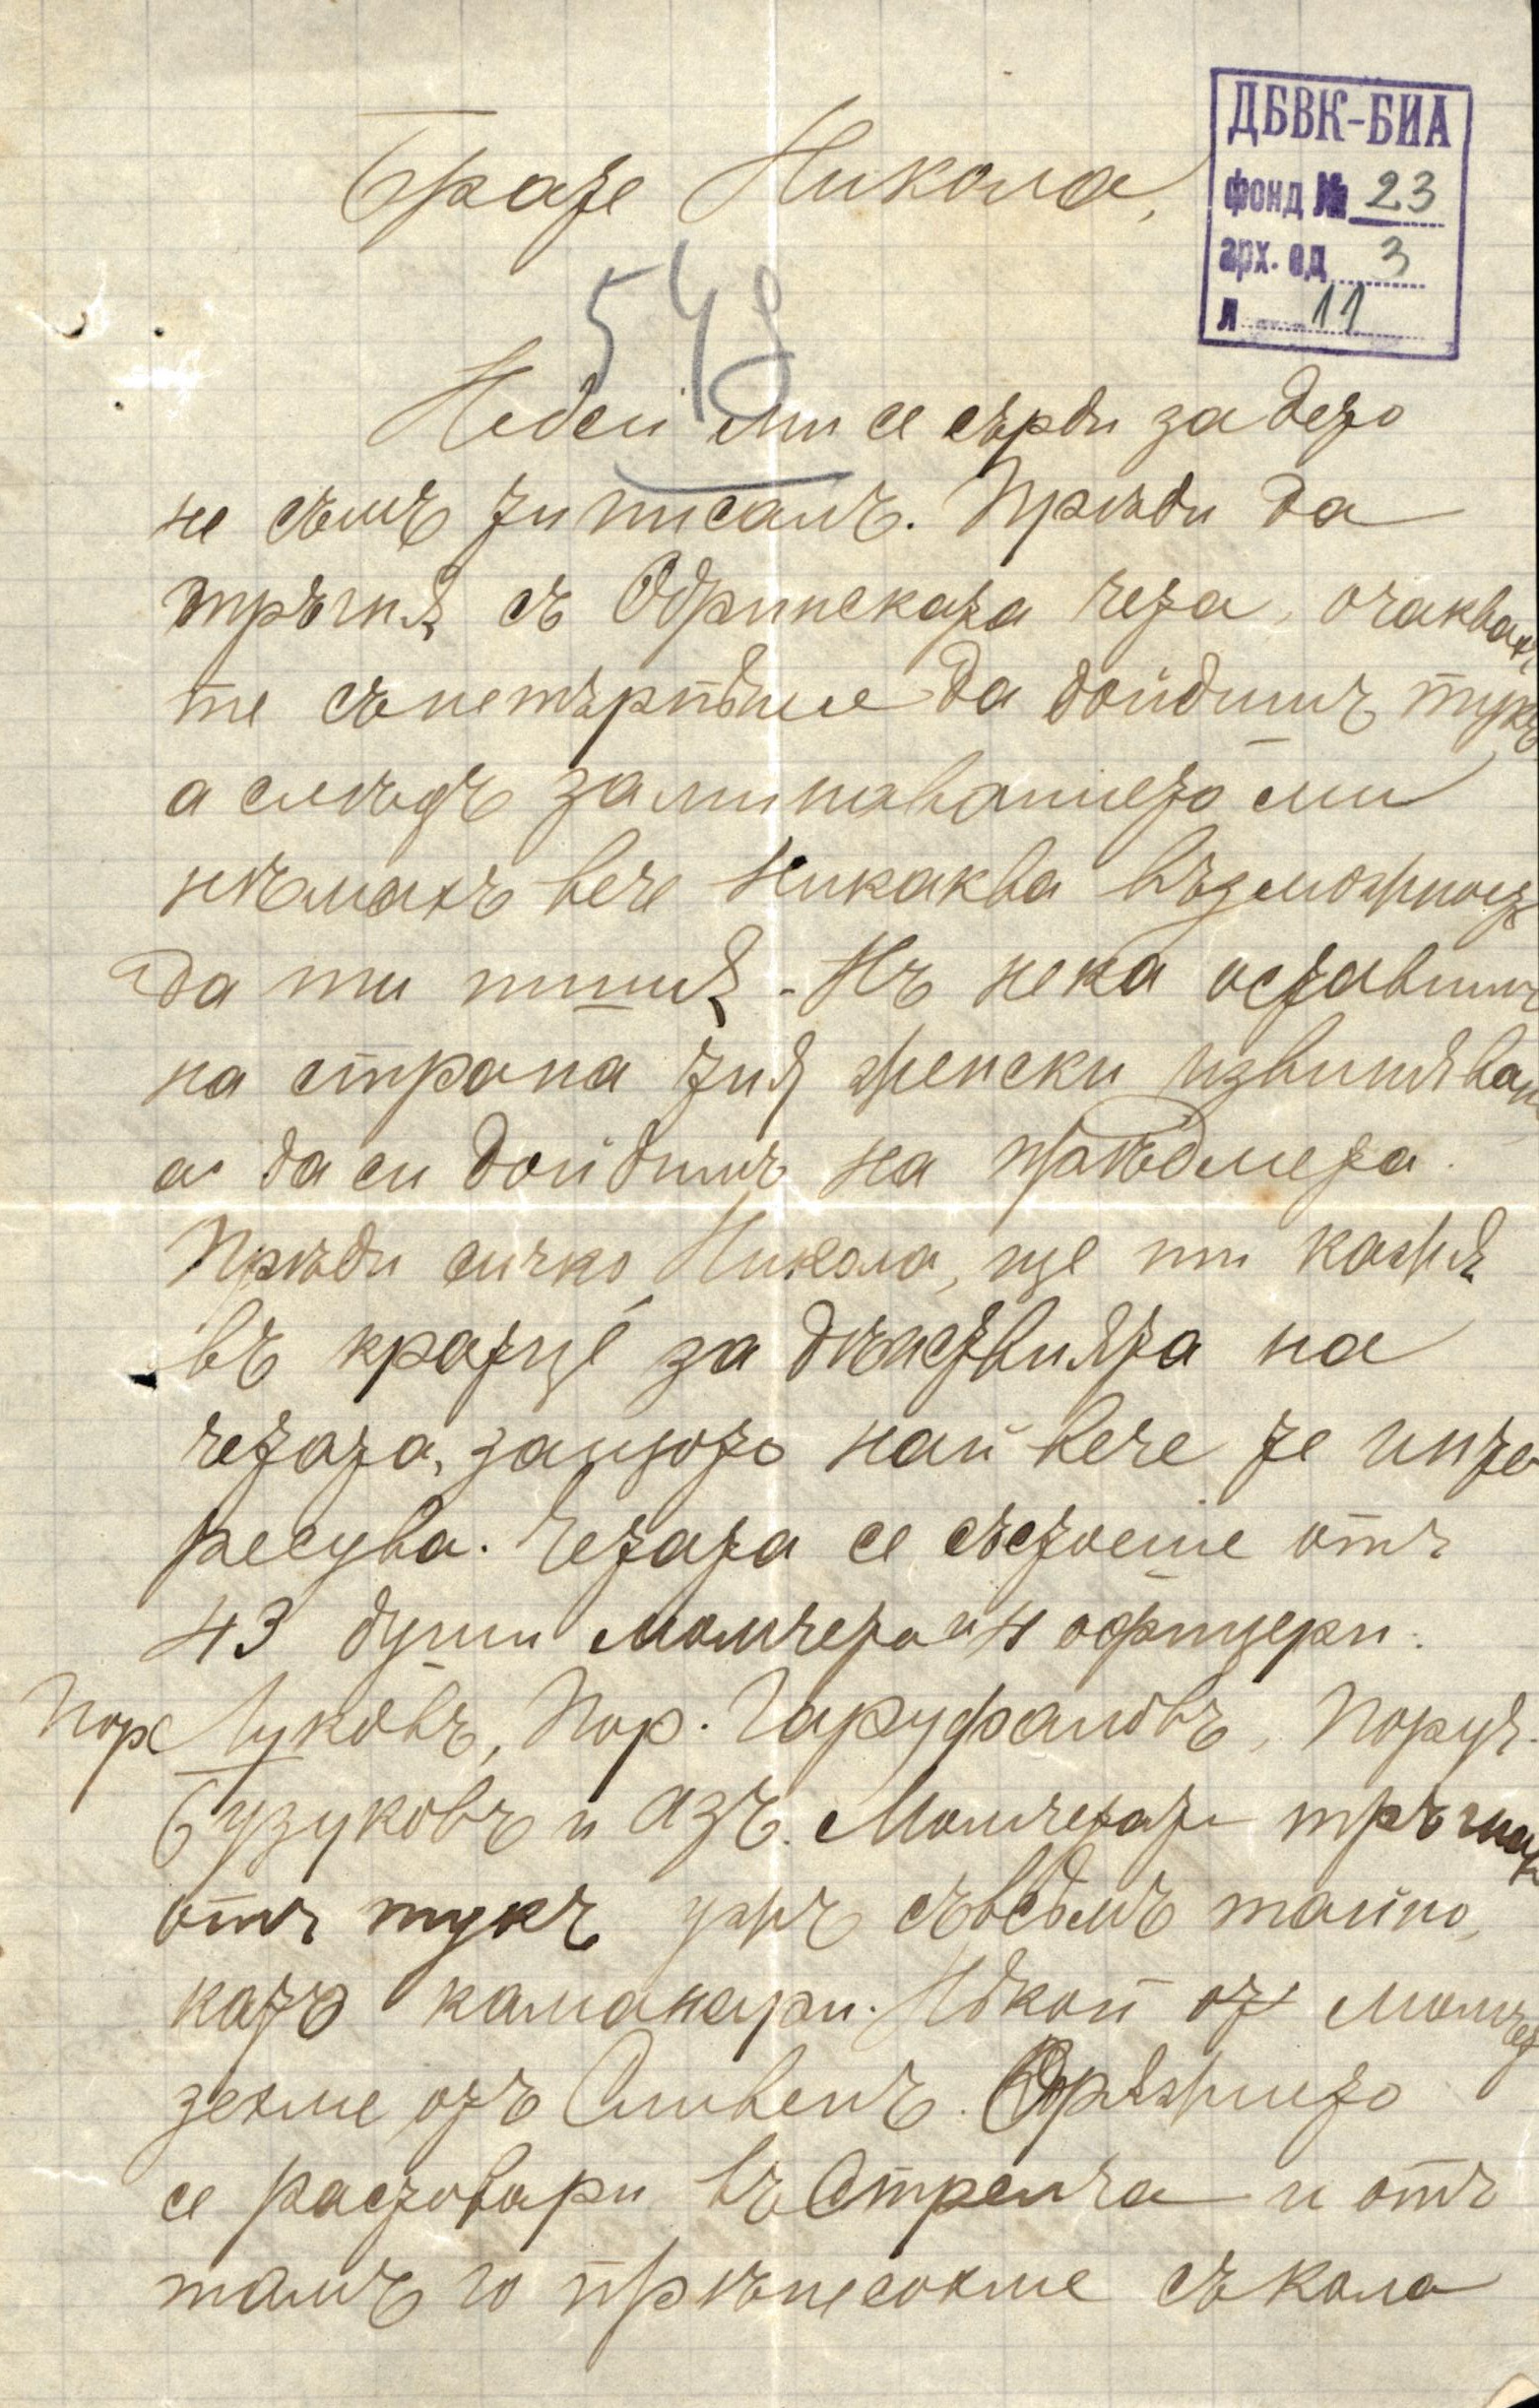 ДБВК-БИА
фонд № 23
арх. ед. 3
л 11
Брате Никола,
548
Недей ми се сърди за дето
не съмъ ти писалъ. Прѣди да
тръгнѫ съ Одринската чета, очаквахъ
те съ нетърпѣние да дойдишъ тукъ
а слѣдъ заминаванието ми
нѣмахъ вече никаква възможность
да ти пишѫ. Нъ нека оставимъ
на страна тия женски извинявания
а да си дойдимъ на прѣдмета.
Прѣди сичко, Никола, ще ти кажѫ
въ кратцѣ за дѣйствията на
четата, защото най вече те инте
ресува. Четата се състоеше отъ
43 души момчета и 4 офицери:
Пор. Луковъ, Пор. Гаруфаловъ, Поруч.
Бузуковъ и азъ. Момчетата тръгнаха
отъ тукъ ужъ съвсѣмъ тайно,
като каманари. Нѣкои от момчетата
зехме отъ Сливенъ. Орѫжието
се растовари въ Стралча и отъ
тамъ го прѣнесохме съ кола